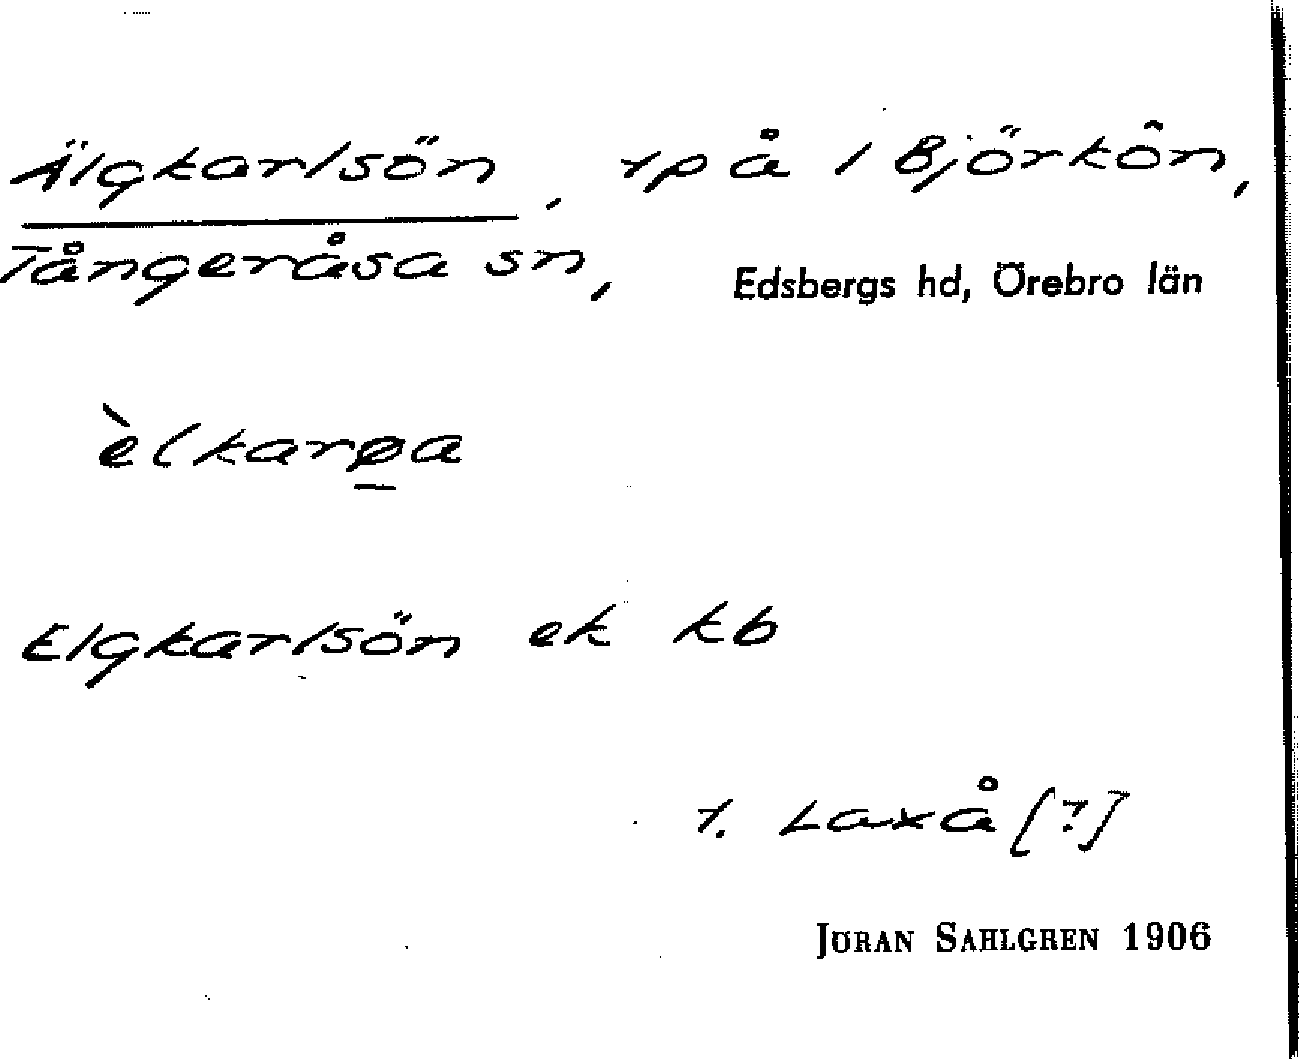 Älgkarlsön, rp å / Björkön,
Tångeråsa sn, Edsbergs hd, Örebro län
èlkarøa
Elgkarlsön ek kb
1. Laxå [?]
JÖRAN SAHLGREN 1906